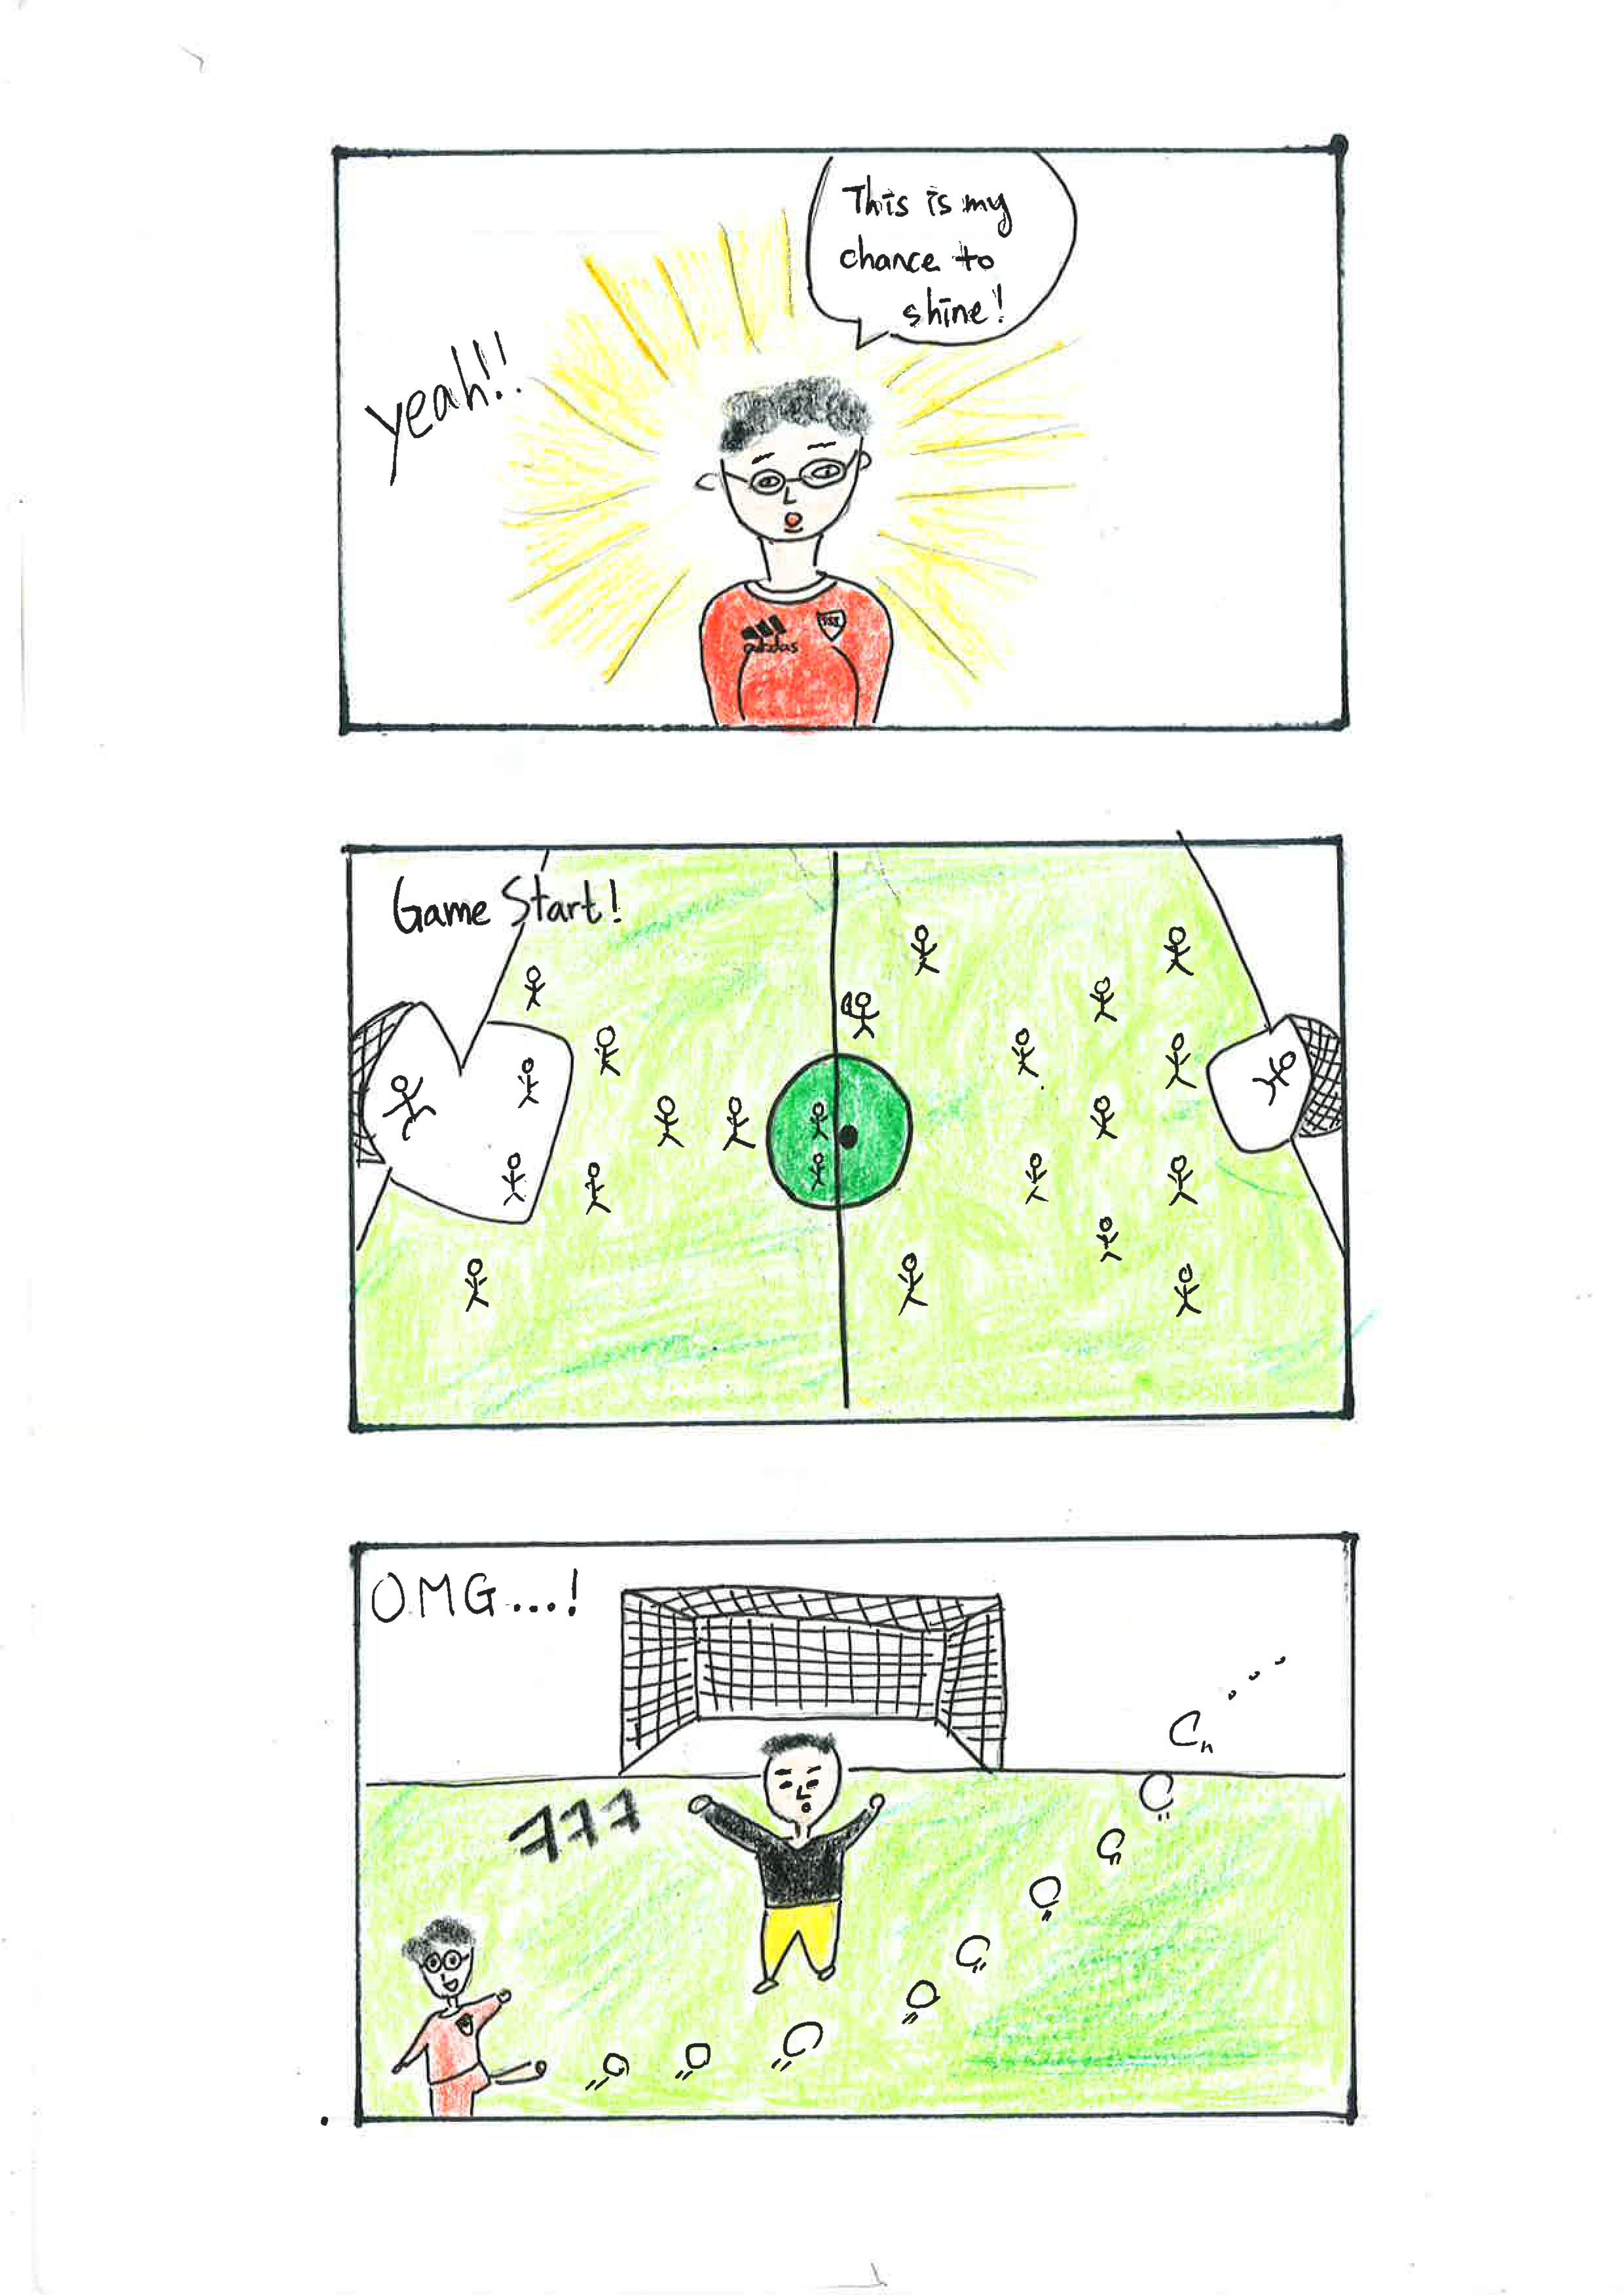 Yeah!!
This is my
chance to
shine!
adidas
Game Start!
OMG...!
777